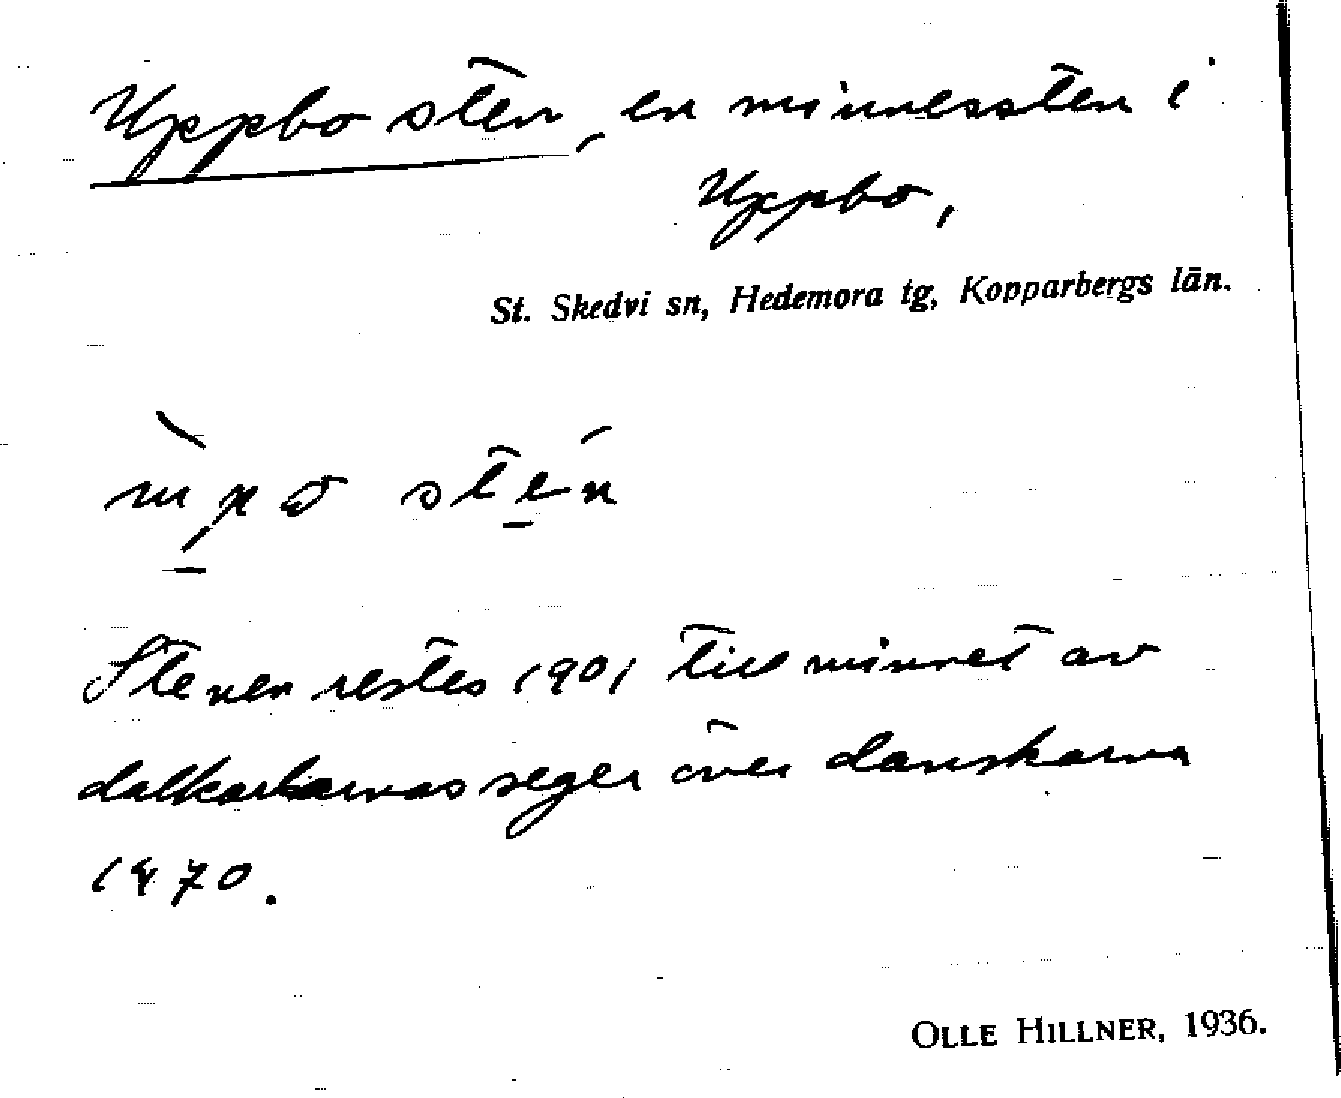 Uppbo sten, en minnessten i
Uppbo,
St. Skedvi sn, Hedemora tg, Kopparbergs län.
Stenen restes 1901 till minnet av
dalkarlarnas seger över danskarna
1470.
OLLE HILLNER, 1936.